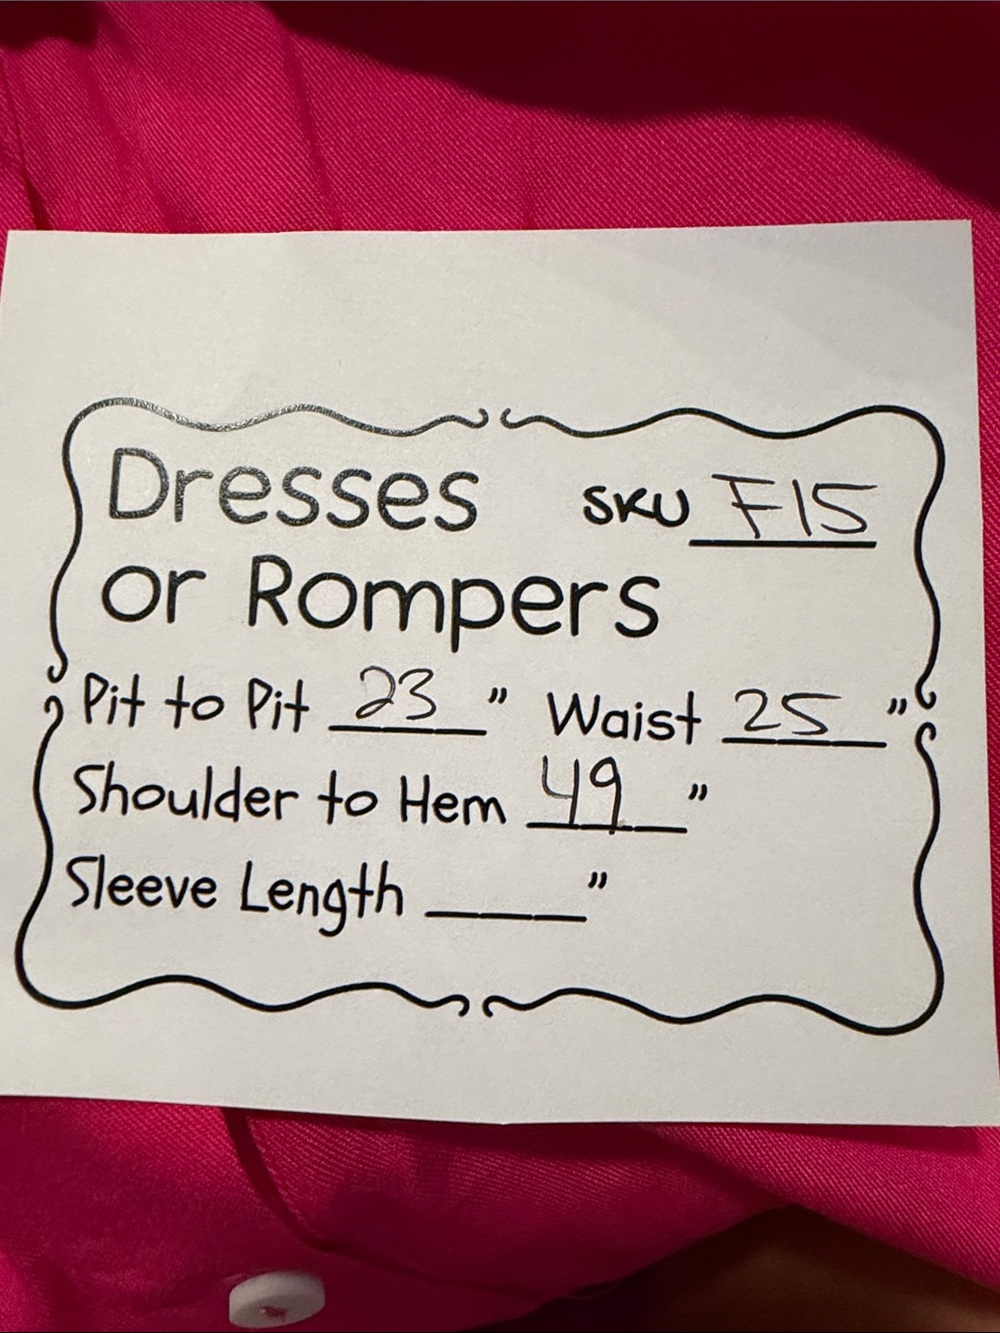 Dresses SKU F15
or Rompers
Pit to Pit 23 " Waist 25 "
Shoulder to Hem 49 "
Sleeve Length ______"